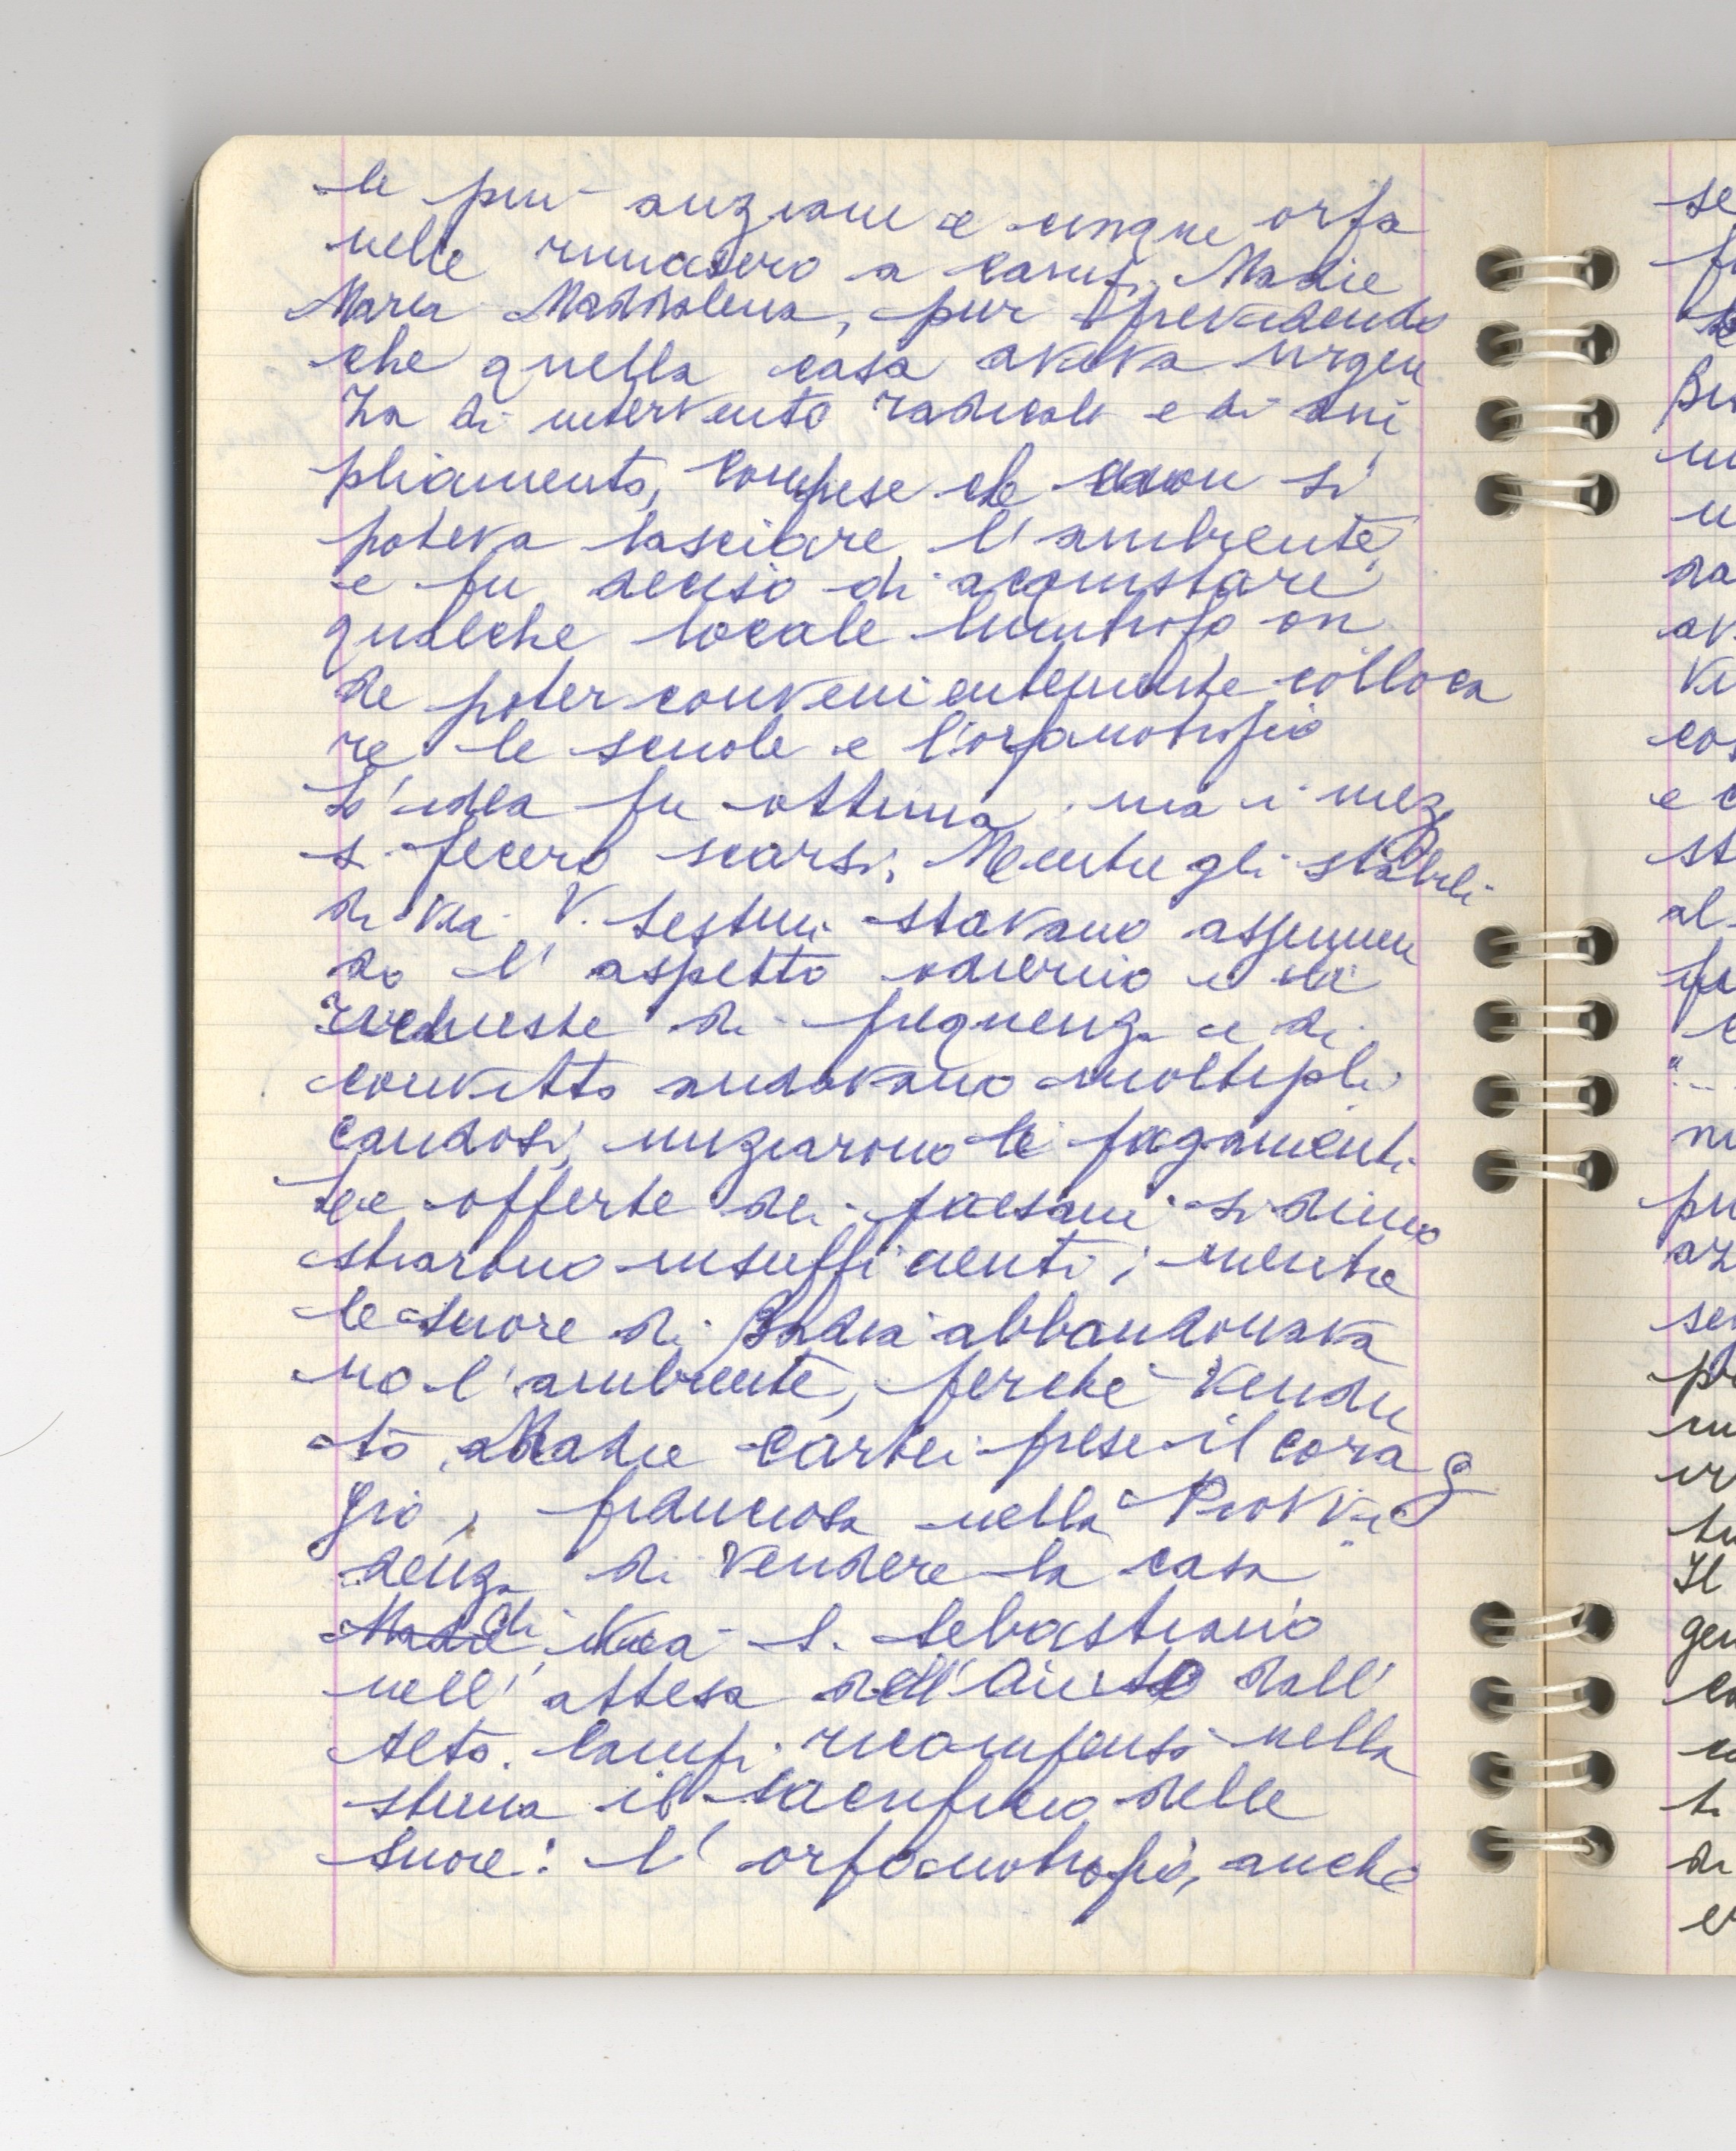 le piu anziane e cinque orfa
nelle rimasero a Campi. Madre
Maria Maddalena, pur prevedendo
che quella casa aveva urgen
za di intervento radicale e di am
pliamento, comprese che non si
poteva lasciare l'ambiente,
e fu deciso di acquistare
qualche locale limitrofo on
de poter convenientemente colloca
re le scuole e l'orfanotrofio
L'idea fu ottima, ma i mezzi
si fecero scarsi; Mentre gli stabili
di via V. Testini stavano assumen
do l'aspetto odierno e le
richieste di frequenza e di
convitto andavano moltipli
candosi, iniziarono i pagamenti
Le offerte dei paesani si dimo
strarono insufficienti; mentre
le suore di Badia abbandonava
no l'ambiente, perché vendu
to, Madre Carbei prese il corag
gio, fiduciosa nella Provvi
denza di vendere la casa
Madre di via S. Sebastiano
nell'attesa dell'aiuto dall'
Alto. Campi ricompensò nella
stima il sacrificio delle
suore: l'orfanotrofio, anche
se
Il
e
st
al